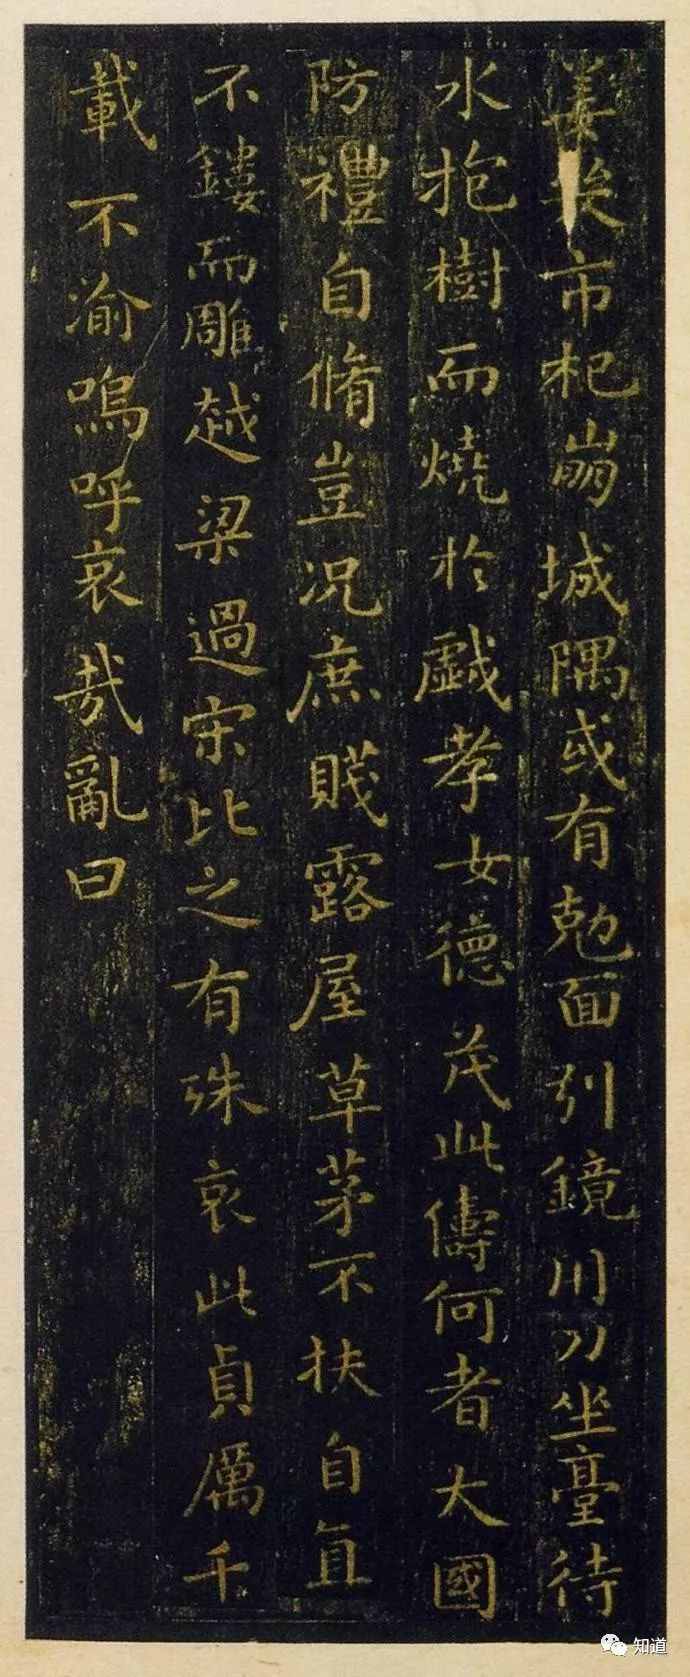 姜市杞崩城隅或有勊面引鏡用刀坐臺待
水抱樹而燒於戯孝女德茂此儔何者大國
防禮自脩豈况庶賤露屋草茅不扶自直
不鏤而雕越梁過宋比之有殊哀此貞厲千
載不渝嗚呼哀哉亂曰
知道